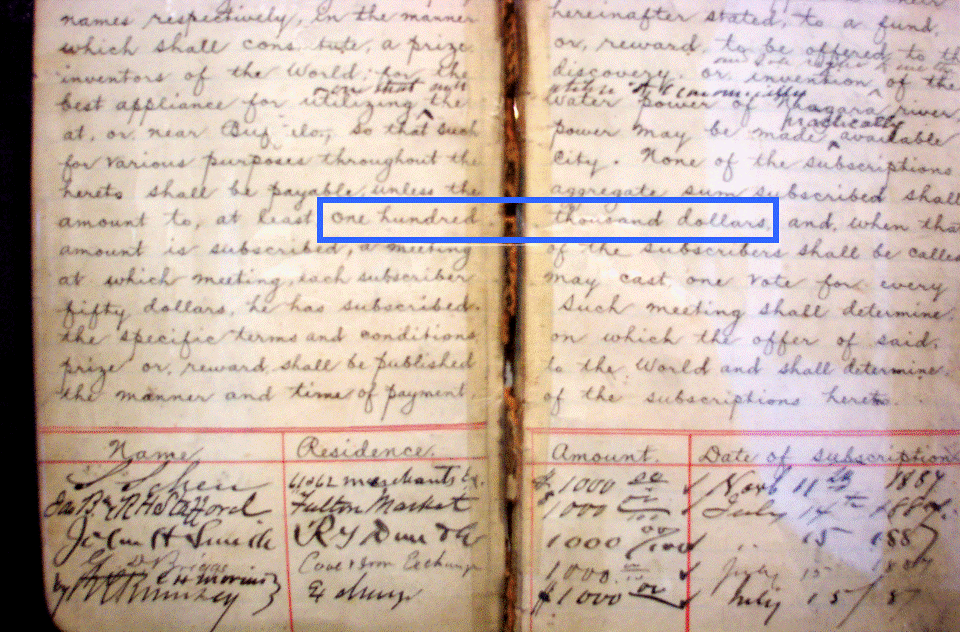 names respectively, in the manner hereinafter stated, to a fund,
which shall cons tute, a prize or, reward, to be offered to the
inventors of the World, for the discovery. or invention of the
best appliance for utilizing the water power of Niagara river,
at, or near Buf lo, so that such power may be made available
for various purposes throughout the City. None of the subscriptions
hereto shall be payable, unless the aggregate sum subscribed shall
amount to, at least one hundred thousand dollars, and, when that
amount is subscribed, a meeting of the subscribers shall be called
at which meeting, each subscriber may cast one vote for every
fifty dollars, he has subscribed. Such meeting shall determine,
the specific terms and conditions on which the offer of said.
prize or, reward, shall be published to the World and shall determine,
the manner and time of payment of the subscriptions hereto.
Name Residence. Amount. Date of subscription
merchants Ex. $1000 11 1887
Jas B R H Stafford Fulton Market $1000 July 14th
John H Smith R G Dun & Co 1000 15 1887
Briggs Exchange 1000 July 15
by $1000 July 15/87